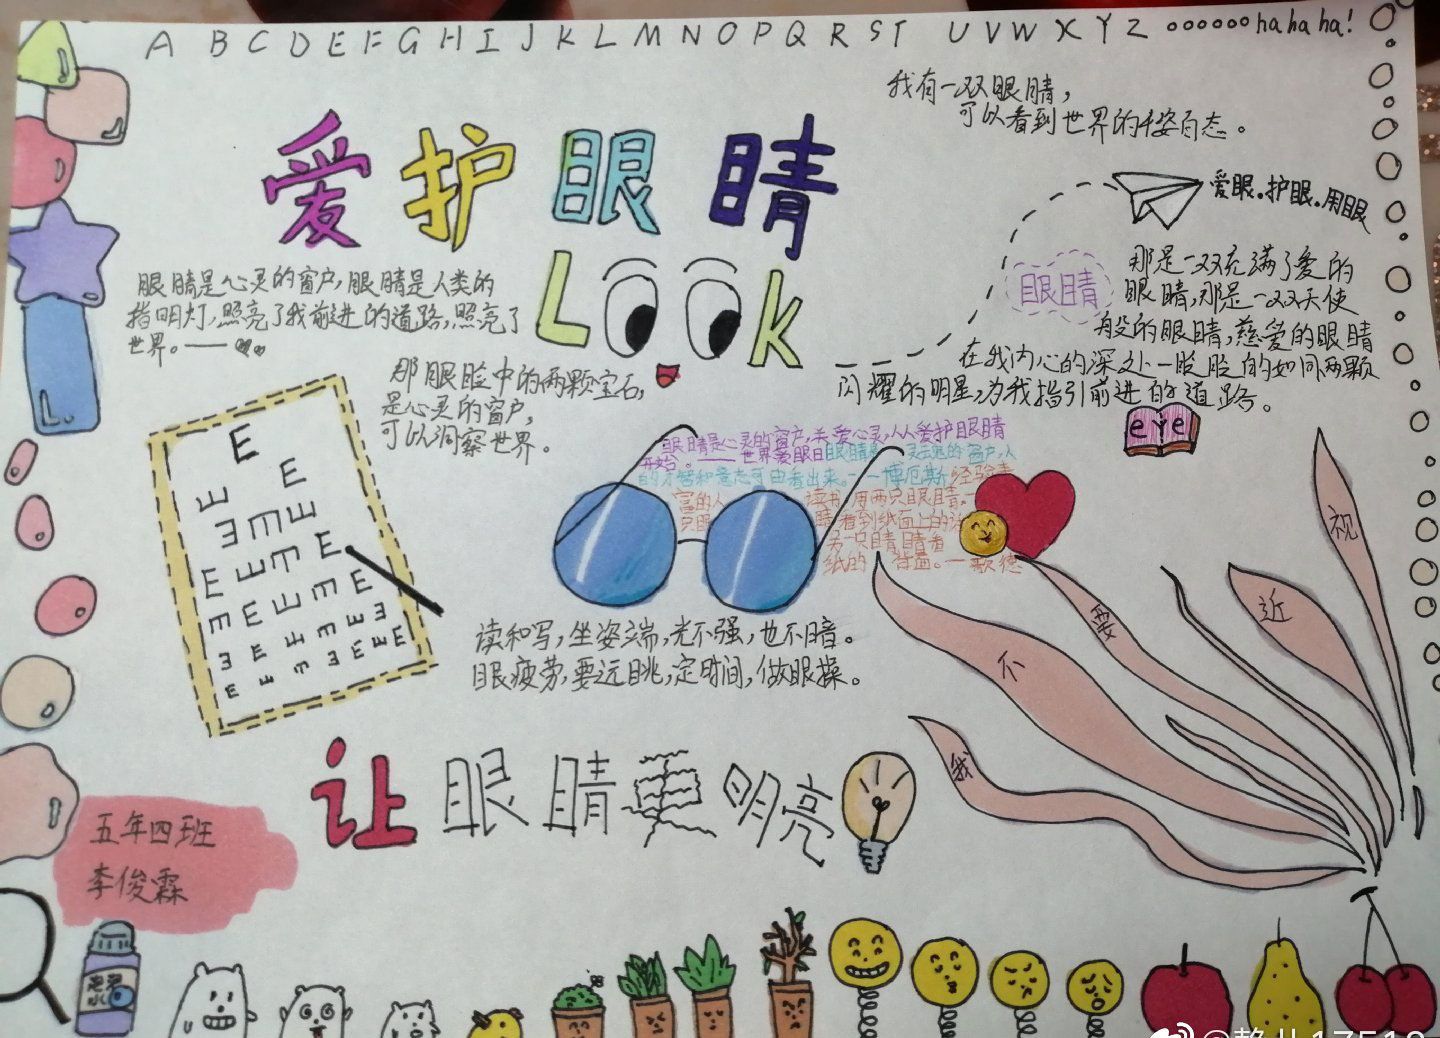 A B C D E F G H I J K L M N O P Q R S T U V W X Y Z oooooo ha ha ha!
我有一双眼睛，
可以看到世界的千姿百态。
爱护眼睛
Look
爱眼.护眼.用眼
眼睛
那是一双充满了爱的
眼睛,那是一双天使
般的眼睛,慈爱的眼睛
在我内心的深处一眨眨的如同两颗
闪耀的明星,为我指引前进的道路。
眼睛是心灵的窗户,眼睛是人类的
指明灯,照亮了我前进的道路,照亮了
世界。——
那眼睑中的两颗宝石,
是心灵的窗户,
可以洞察世界。
eye
眼睛是心灵的窗户,关爱心灵,从爱护眼睛
开始。——世界爱眼日
的才智和意志可由看出来。——博厄斯
经验丰
富的人
读书用两只眼睛。
看到纸面上的
另一只眼睛看
纸的背面。—歌德
E
E
E
E
E
E
E
读和写,坐姿端,光不强,也不暗。
眼疲劳,要远眺,定时间,做眼操。
我 不 要 近 视
让眼睛更明亮
五年四班
李俊霖